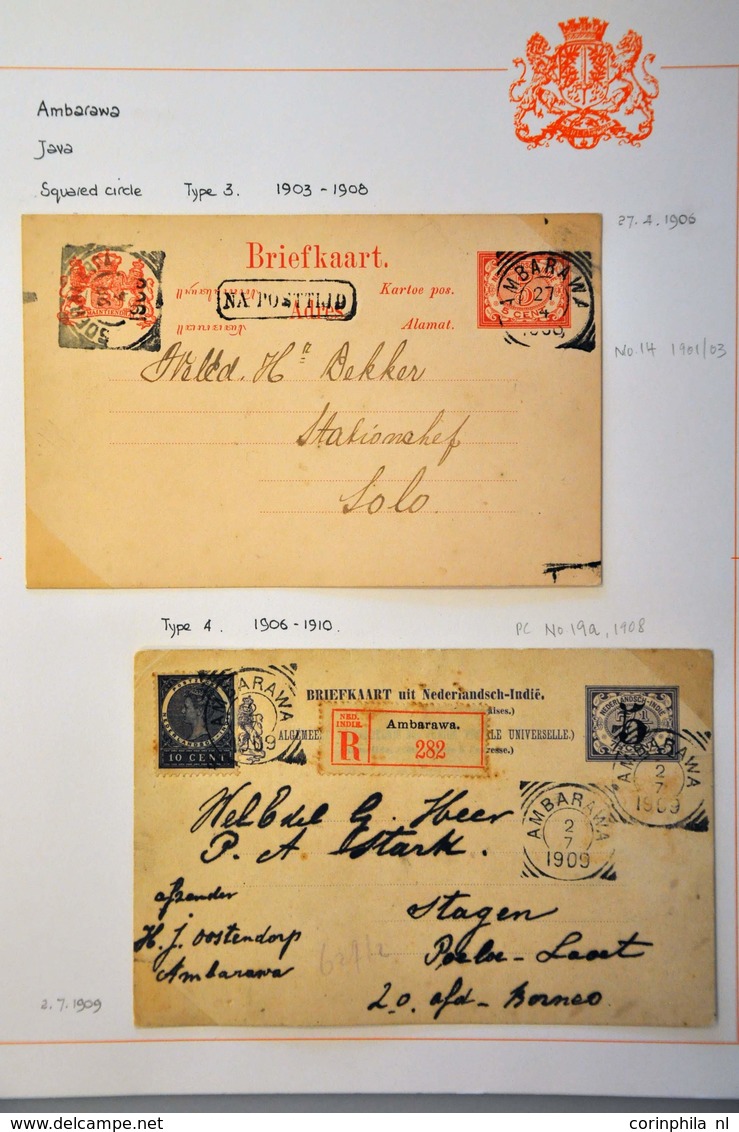 Ambarawa
Java
Squared circle Type 3. 1903 - 1908
27. 4. 1906
Briefkaart.
NA POSTTIJD
Kartoe pos.
Adres
Alamat.
5 CENT
AMBARAWA
27
4
No. 14 1901/03
Hr Dekker
Stationschef
Solo.
Type 4. 1906 - 1910.
PC No 19a, 1908
BRIEFKAART uit Nederlandsch-Indië.
10 CENT
AMBARAWA
NED. INDIE.
R
Ambarawa.
282
ALGEMEE
LE UNIVERSELLE.)
NEDERLANDSCH-INDIË
5
AMBARAWA
2
7
1909
AMBARAWA
2
7
1909
WelEdel G. Heer
P. A Stark.
afzender
H. J. Oostendorp
Ambarawa
Stagen
Poeloe - Laoet
Z. O. afd - Borneo
2. 7. 1909
corinphila nl